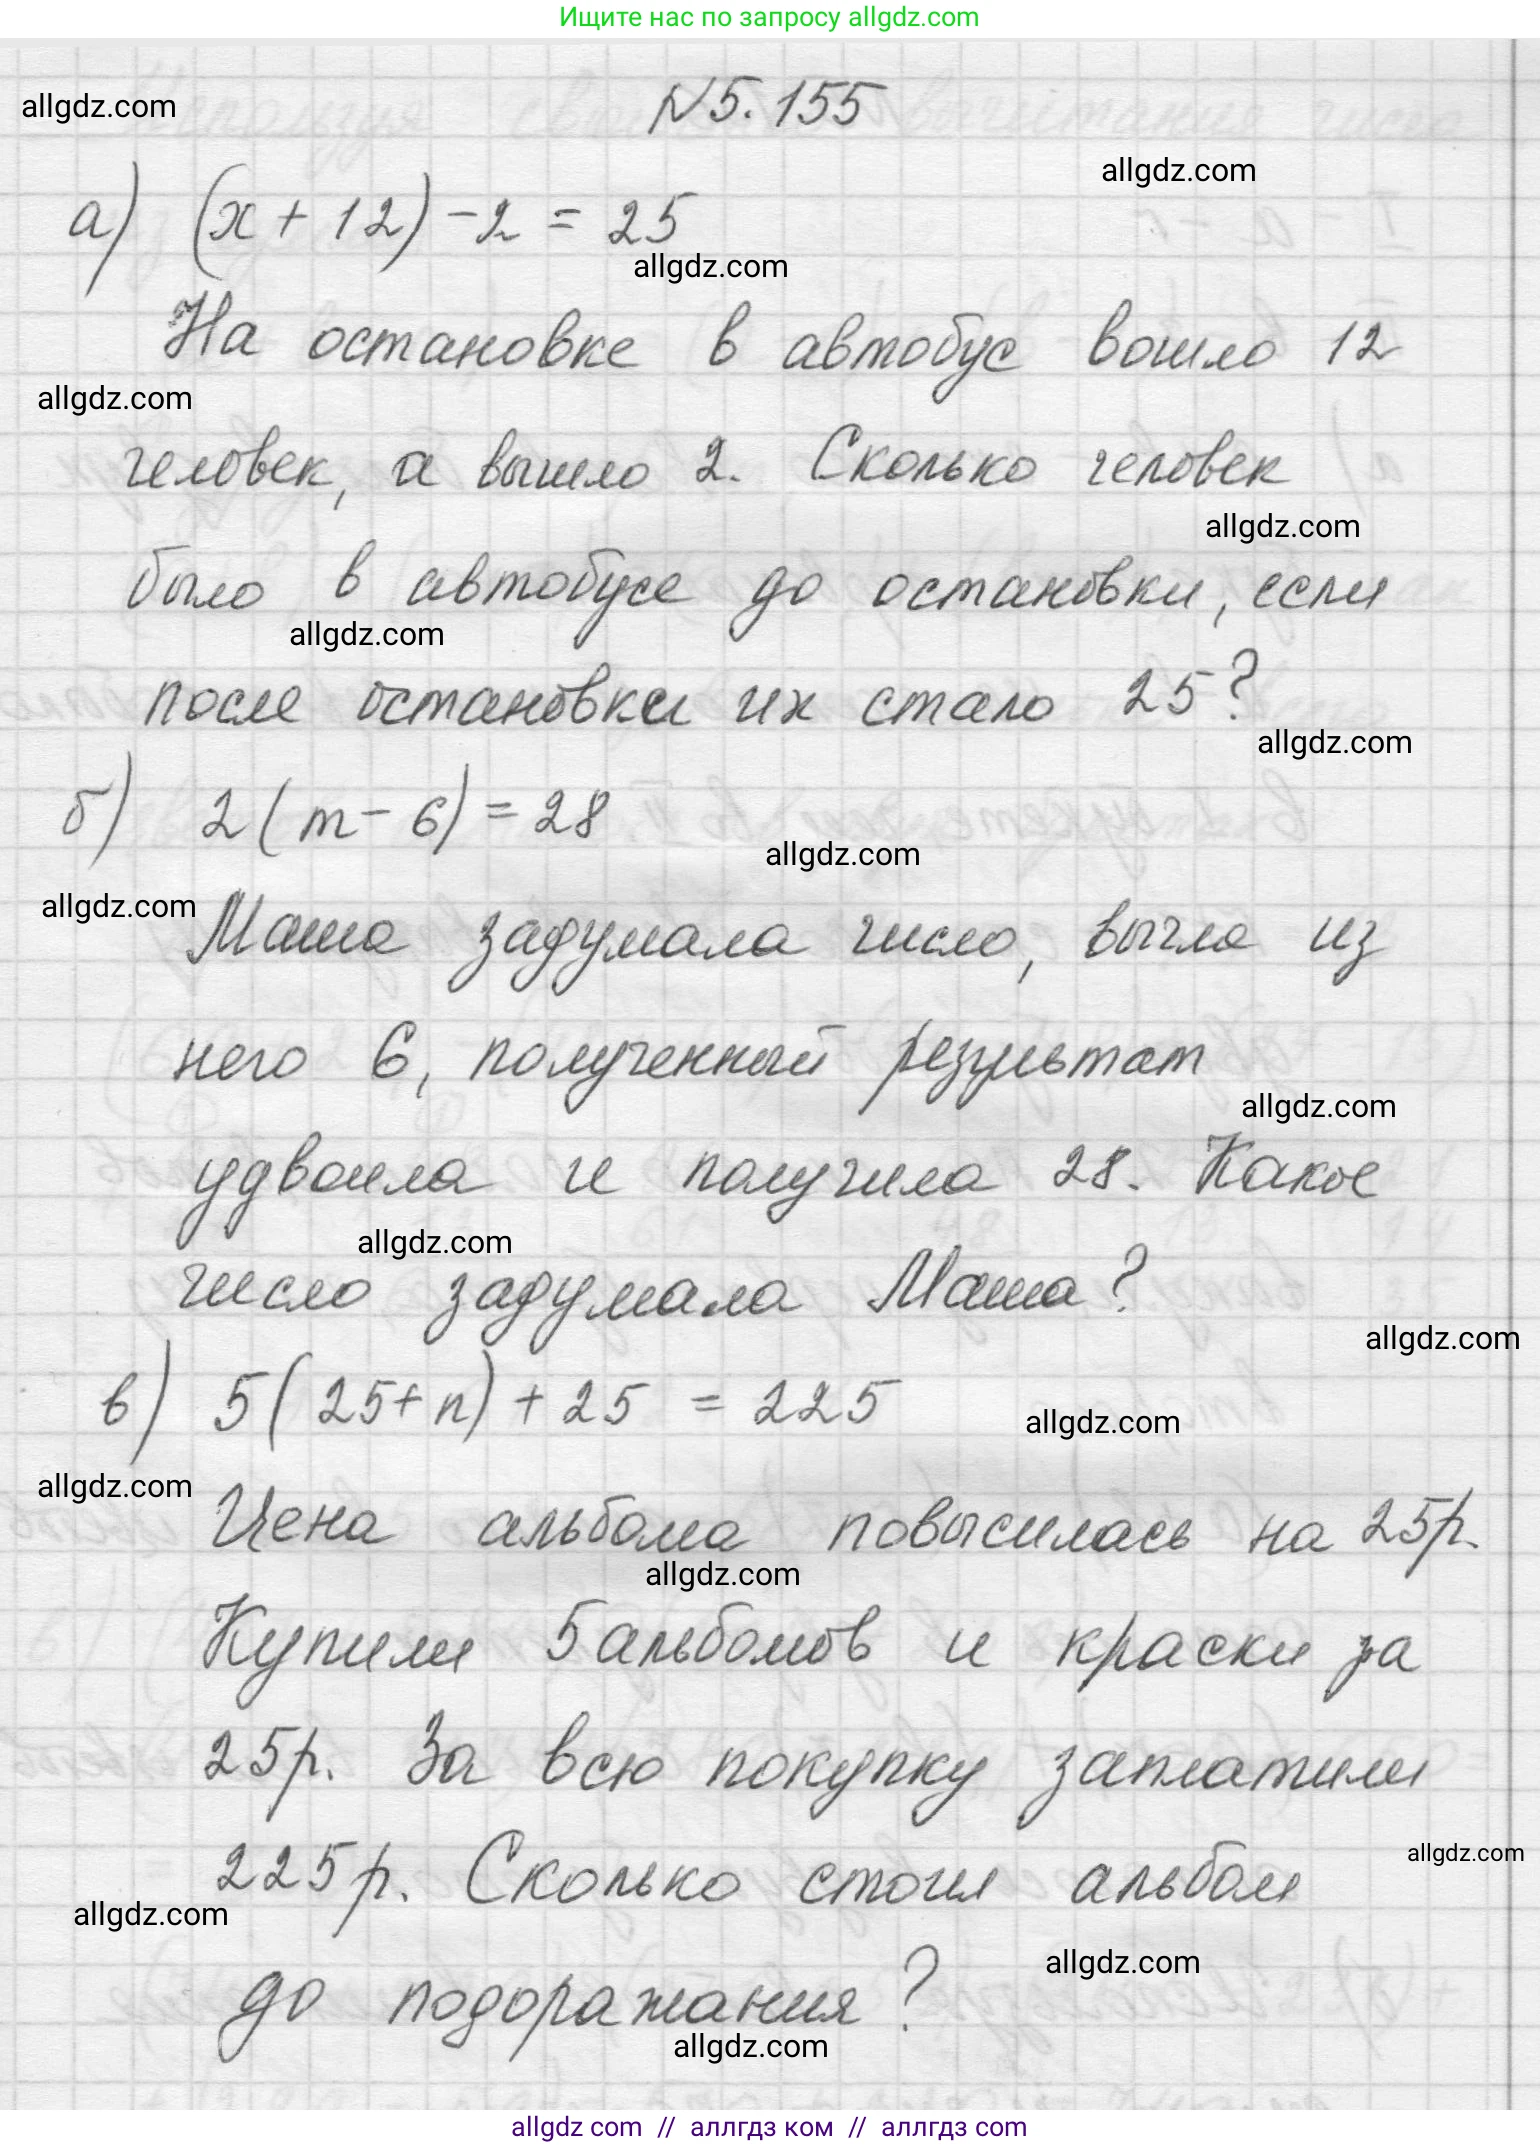 Ищите нас по запросу allgdz.com
allgdz.com
N5.155
allgdz.com
а) (x + 12) - 2 = 25
allgdz.com
На остановке в автобус вошло 12
allgdz.com
человек, а вышло 2. Сколько человек
allgdz.com
было в автобусе до остановки, если
allgdz.com
после остановки их стало 25?
allgdz.com
б) 2(m - 6) = 28
allgdz.com
allgdz.com
Маша задумала число, вычла из
него 6, полученный результат
allgdz.com
удвоила и получила 28. Какое
allgdz.com
число задумала Маша?
allgdz.com
в) 5(25+n) + 25 = 225
allgdz.com
allgdz.com
Цена альбома повысилась на 25р.
allgdz.com
Купили 5 альбомов и краски за
25р. За всю покупку заплатили
allgdz.com
225р. Сколько стоил альбом
allgdz.com
allgdz.com
до подоражания?
allgdz.com
allgdz com // аллгдз ком // аллгдз com